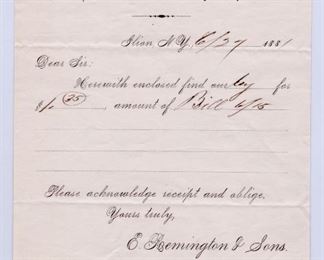 Ilion N.Y. 6/27 1881
Dear Sir:
Herewith enclosed find our for
$1.25 amount of Bill 6/15
Please acknowledge receipt and oblige.
Yours truly,
E. Remington & Sons.